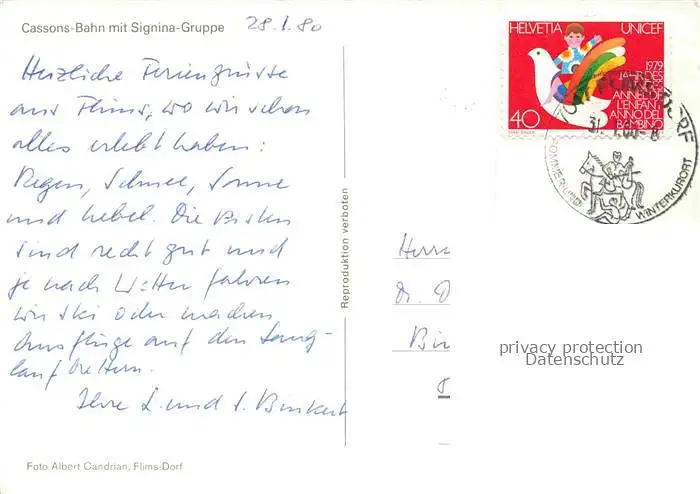 Cassons-Bahn mit Signina-Gruppe
28.1.80
Herzliche Feriengrüsse
aus Flims, wo wir schon
alles erlebt haben:
Regen, Schnee, Sonne
und Nebel. Die Pisten
sind recht gut und
je nach Wetter fahren
wir Ski oder machen
Ausflüge auf den Lang-
laufbrettern.
Ihre L. und S. Binkert
Foto Albert Candrian, Flims-Dorf
Reproduktion verboten
HELVETIA UNICEF
1979
JAHR DES
L'ENFANT
ANNO DEL
BAMBINO
40
DORF
SOMMER UND
WINTERKURORT
Herrn
Dr. D
Bin
privacy protection
Datenschutz